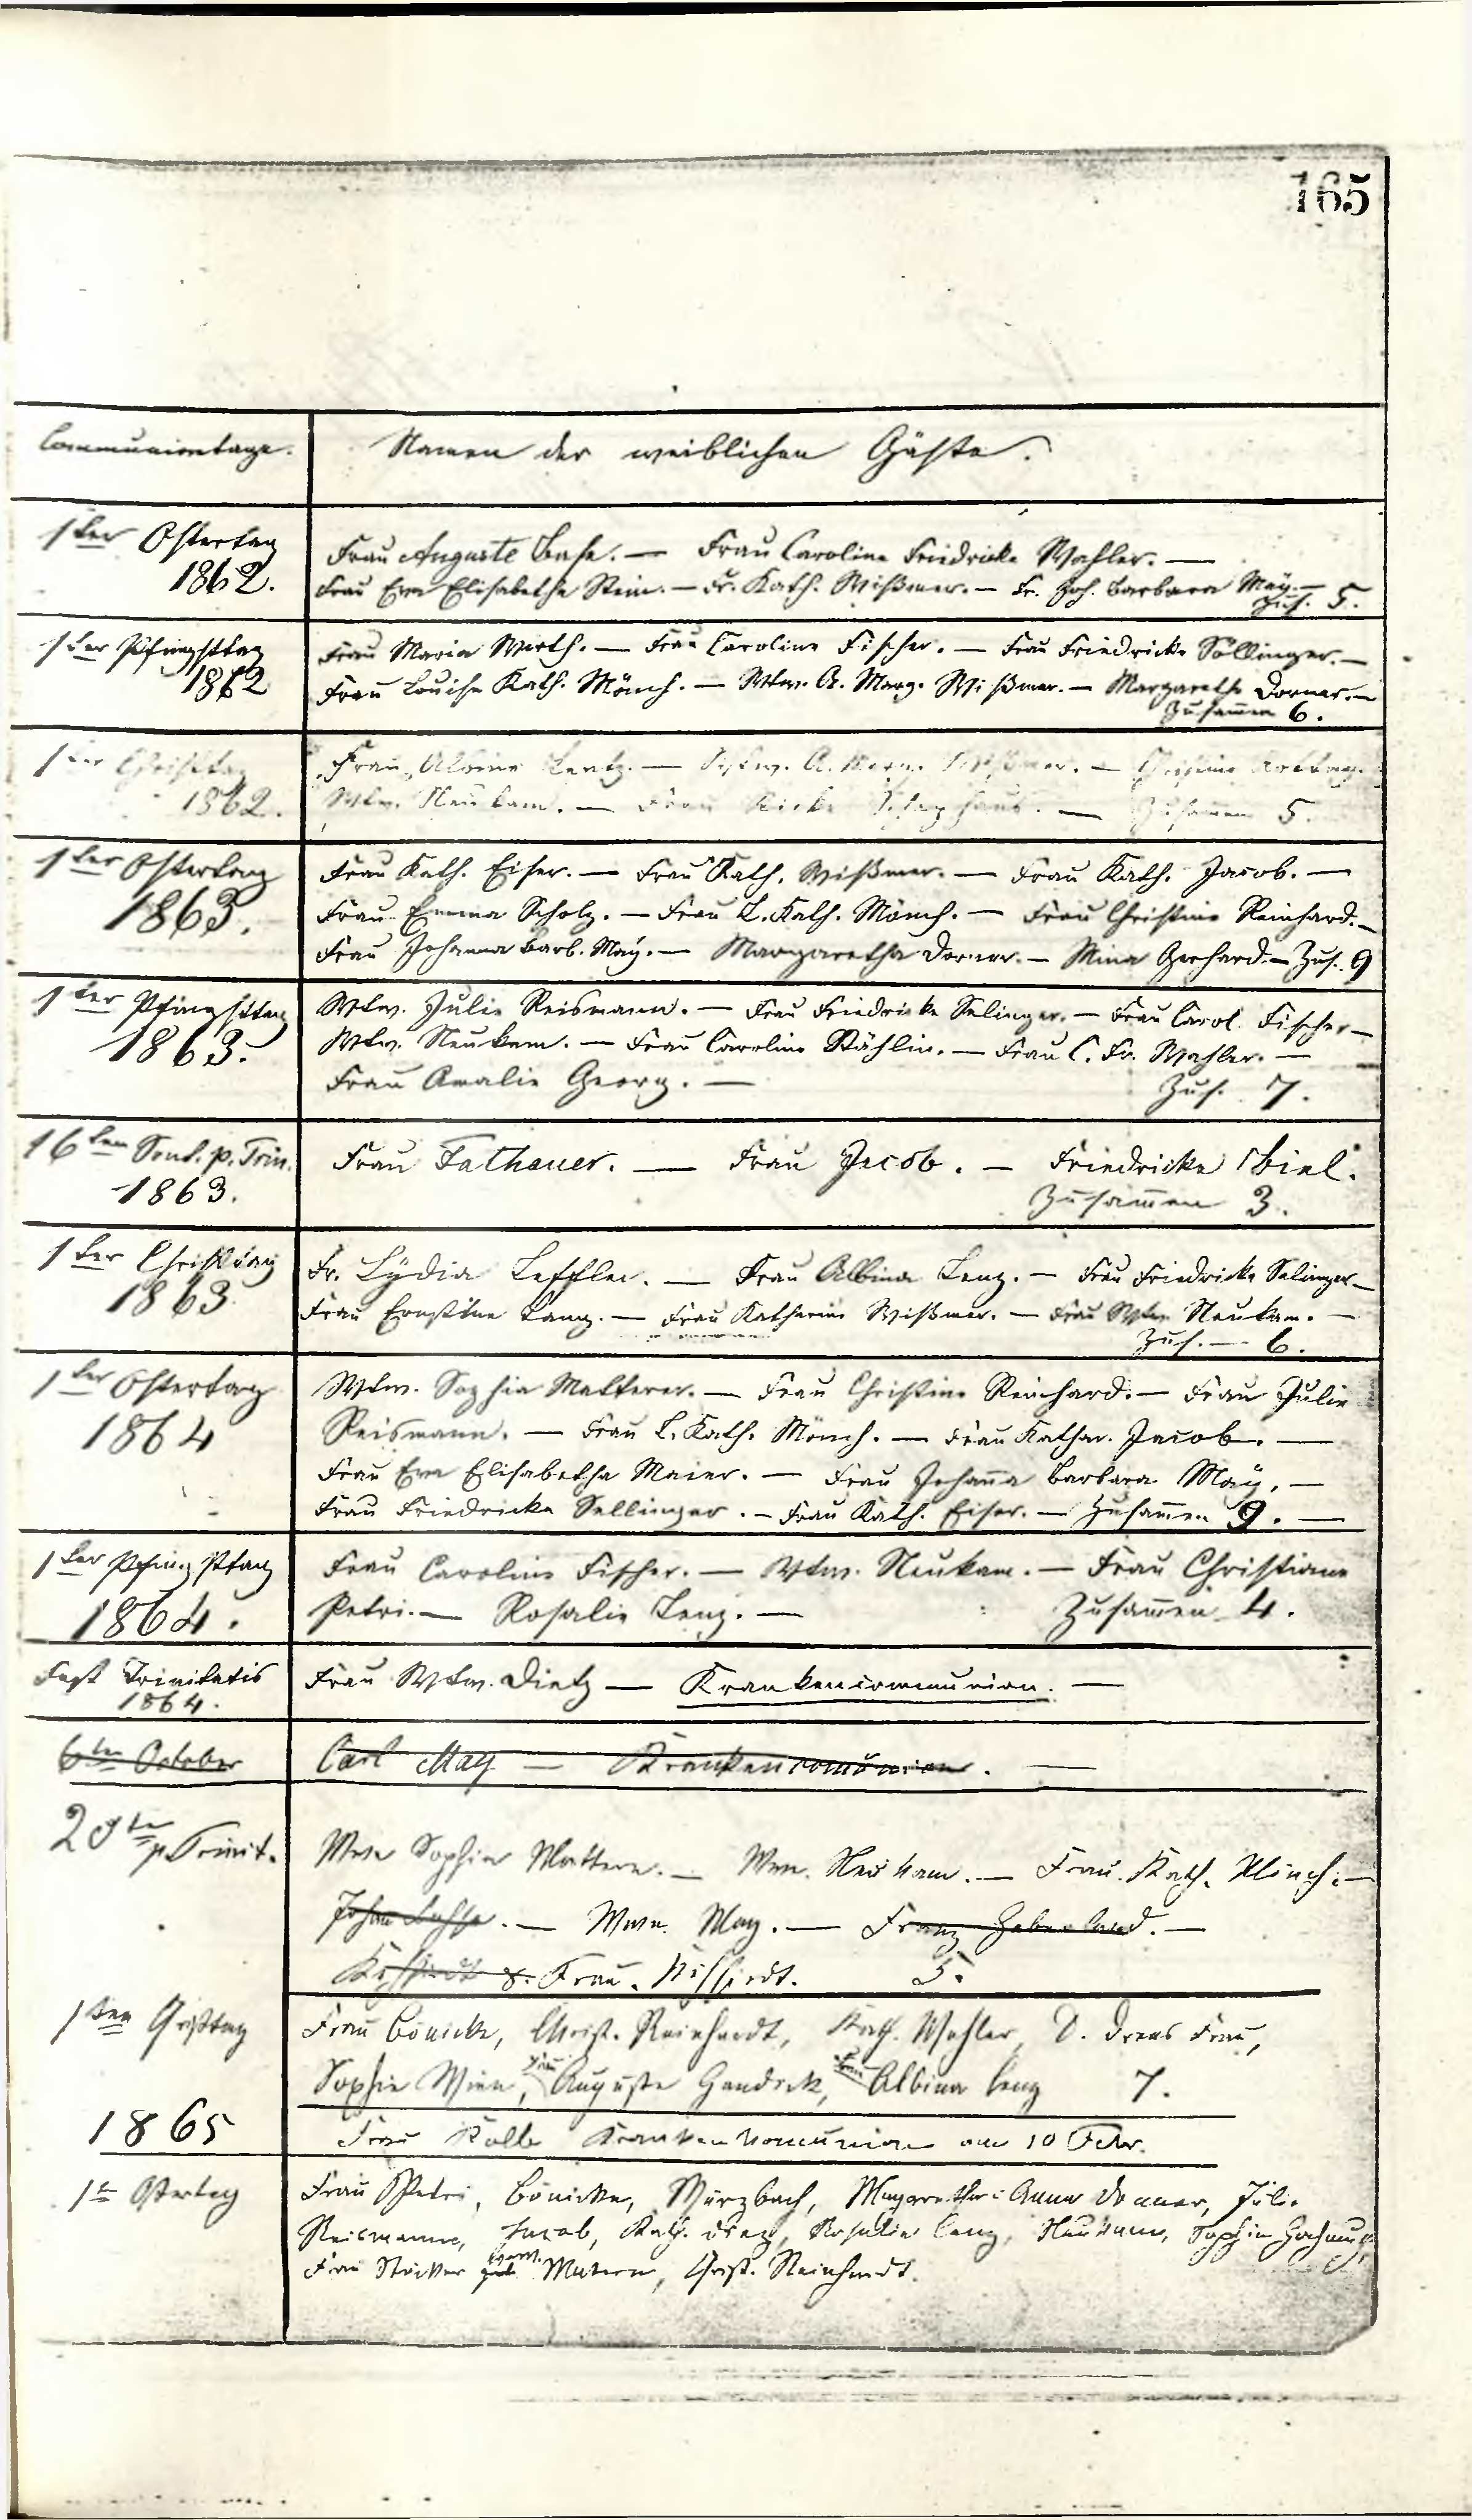 165
Communiontage. Namen der weiblichen Gäste.
1ter Ostertag
1862.
Frau Auguste Base. — Frau Caroline Friedricke Wahler. —
Frau Eva Elisabetha Stein. — Fr. Kath. Wißmer. — Fr. Joh. Barbara Maÿ. —
Zus. 5.
1ter Pfingsttag
1862
Frau Maria Werth. — Frau Caroline Fischer. — Frau Friedricke Söllinger. —
Frau Louise Kath. Mönch. — Wtw. A. Marg. Wißmer. — Margaretha Dorner. —
Zusam̄en 6.
1ter Christtag
1862.
Frau Albine Lentz. — Wtw. A. Marg. Wißmer. — Christine
Wtw. Neukam. — Frau Ricke — Zusam̄en 5.
1ter Ostertag
1863.
Frau Kath. Eiser. — Frau Kath. Wißmer. — Frau Kath. Jacob. —
Frau Emma Scholz. — Frau L. Kath. Mönch. — Frau Christine Reinhard. —
Frau Johanna Barb. Maÿ. — Margaretha Dorner. — Mina Gerhard. — Zus. 9
1ter Pfingsttag
1863.
Wtw. Julie Reismann. — Frau Friedricke Selinger. — Frau Carol. Fischer —
Wtw. Neukam. — Frau Caroline Stählin. — Frau C. Fr. Wahler. —
Frau Amalie Georg. — Zus. 7.
16ten Sont. p. Trin.
1863.
Frau Fathauer. — Frau Jacob. — Friedricke Thiel.
Zusam̄en 3.
1ter Christtag
1863
Fr. Lÿdia Leffler. — Frau Albina Lenz. — Frau Friedricke Selinger —
Frau Ernstine Lang. — Frau Katharine Wißmer. — Frau Wtw Neukam. —
Zus. — 6.
1ter Ostertag
1864
Wtw. Sophia Matterer. — Frau Christine Reinhard. — Frau Julie
Reismann. — Frau L. Kath. Mönch. — Frau Kathar. Jacob. —
Frau Eva Elisabetha Maier. — Frau Joham̄a Barbara Maÿ. —
Frau Friedricka Sellinger. — Frau Kath. Eiser. — Zusam̄en 9. —
1ter Pfingsttag
1864.
Frau Caroline Fischer. — Wtw. Neukam. — Frau Christiane
Petri. — Rosalie Lenz. — Zusam̄en 4.
Fest Trinitatis
1864.
Frau Wtw. Dietz — Krankencommunion. —
6ten October Carl May — Krankencom̄union. —
20te p. Trinit.
Wwe Sophia Mattern. — Wwe. Neukam. — Frau Kath. Mönch. —
Johan — Wwe. May. — Franz Haberland. —
& Frau 5.
1ten Christtag
Frau Bönicke, Christ. Reinhardt, Kath. Wahler, D. Drees Frau,
Sophie Wien, Frau Auguste Handrek, Frau Albina Lenz 7.
1865
Frau Kolb Krankenkom̄union am 10 Febr.
1te Ostertag
Frau Petri, Bönicke, Würzbach, Margarethe Anna Donner, Julie
Reismann, Jacob, Kath. Diez, Rosalie Lenz, Neukam, Sophie
Frau Mattern, Christ. Reinhardt.